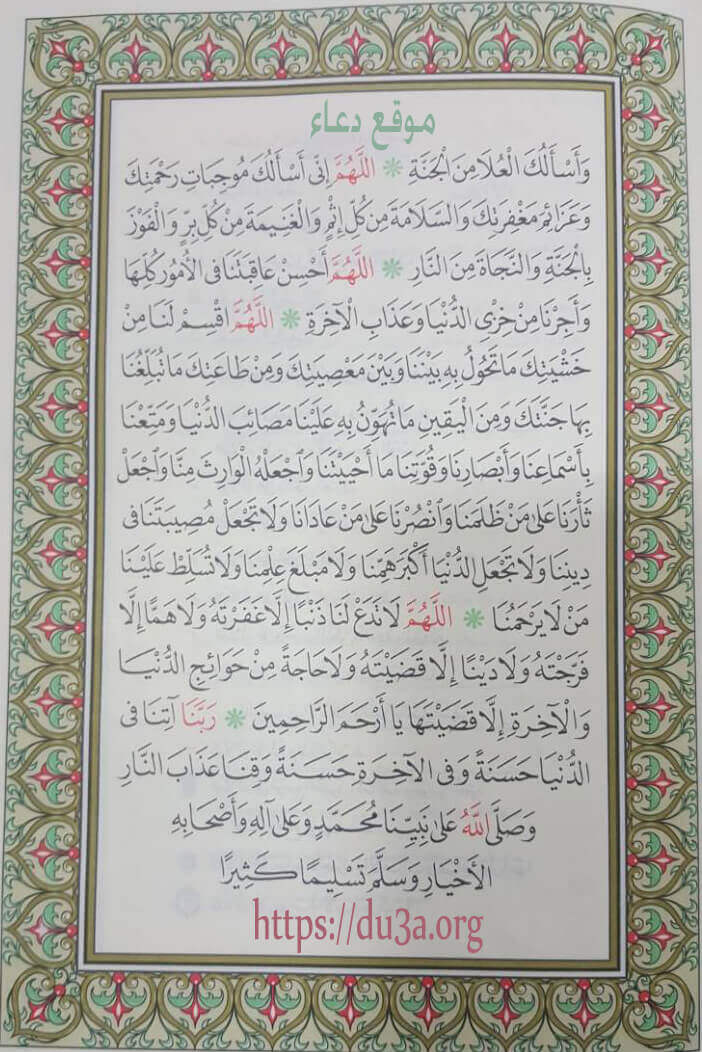 موقع دعاء
وَأَسْأَلُكَ الْعُلَا مِنَ الْجَنَّةِ ❋ اللَّهُمَّ إِنِّي أَسْأَلُكَ مُوجِبَاتِ رَحْمَتِكَ
وَعَزَائِمَ مَغْفِرَتِكَ وَالسَّلَامَةَ مِنْ كُلِّ إِثْمٍ وَالْغَنِيمَةَ مِنْ كُلِّ بِرٍّ وَالْفَوْزَ
بِالْجَنَّةِ وَالنَّجَاةَ مِنَ النَّارِ ❋ اللَّهُمَّ أَحْسِنْ عَاقِبَتَنَا فِي الْأُمُورِ كُلِّهَا
وَأَجِرْنَا مِنْ خِزْيِ الدُّنْيَا وَعَذَابِ الْآخِرَةِ ❋ اللَّهُمَّ اقْسِمْ لَنَا مِنْ
خَشْيَتِكَ مَا تَحُولُ بِهِ بَيْنَنَا وَبَيْنَ مَعْصِيَتِكَ وَمِنْ طَاعَتِكَ مَا تُبَلِّغُنَا
بِهَا جَنَّتَكَ وَمِنَ الْيَقِينِ مَا تُهَوِّنُ بِهِ عَلَيْنَا مَصَائِبَ الدُّنْيَا وَمَتِّعْنَا
بِأَسْمَاعِنَا وَأَبْصَارِنَا وَقُوَّتِنَا مَا أَحْيَيْتَنَا وَاجْعَلْهُ الْوَارِثَ مِنَّا وَاجْعَلْ
ثَأْرَنَا عَلَى مَنْ ظَلَمَنَا وَانْصُرْنَا عَلَى مَنْ عَادَانَا وَلَا تَجْعَلْ مُصِيبَتَنَا فِي
دِينِنَا وَلَا تَجْعَلِ الدُّنْيَا أَكْبَرَ هَمِّنَا وَلَا مَبْلَغَ عِلْمِنَا وَلَا تُسَلِّطْ عَلَيْنَا
مَنْ لَا يَرْحَمُنَا ❋ اللَّهُمَّ لَا تَدَعْ لَنَا ذَنْبًا إِلَّا غَفَرْتَهُ وَلَا هَمًّا إِلَّا
فَرَّجْتَهُ وَلَا دَيْنًا إِلَّا قَضَيْتَهُ وَلَا حَاجَةً مِنْ حَوَائِجِ الدُّنْيَا
وَالْآخِرَةِ إِلَّا قَضَيْتَهَا يَا أَرْحَمَ الرَّاحِمِينَ ❋ رَبَّنَا آتِنَا فِي
الدُّنْيَا حَسَنَةً وَفِي الْآخِرَةِ حَسَنَةً وَقِنَا عَذَابَ النَّارِ
وَصَلَّى اللَّهُ عَلَى نَبِيِّنَا مُحَمَّدٍ وَعَلَى آلِهِ وَأَصْحَابِهِ
الْأَخْيَارِ وَسَلَّمَ تَسْلِيمًا كَثِيرًا
https://du3a.org